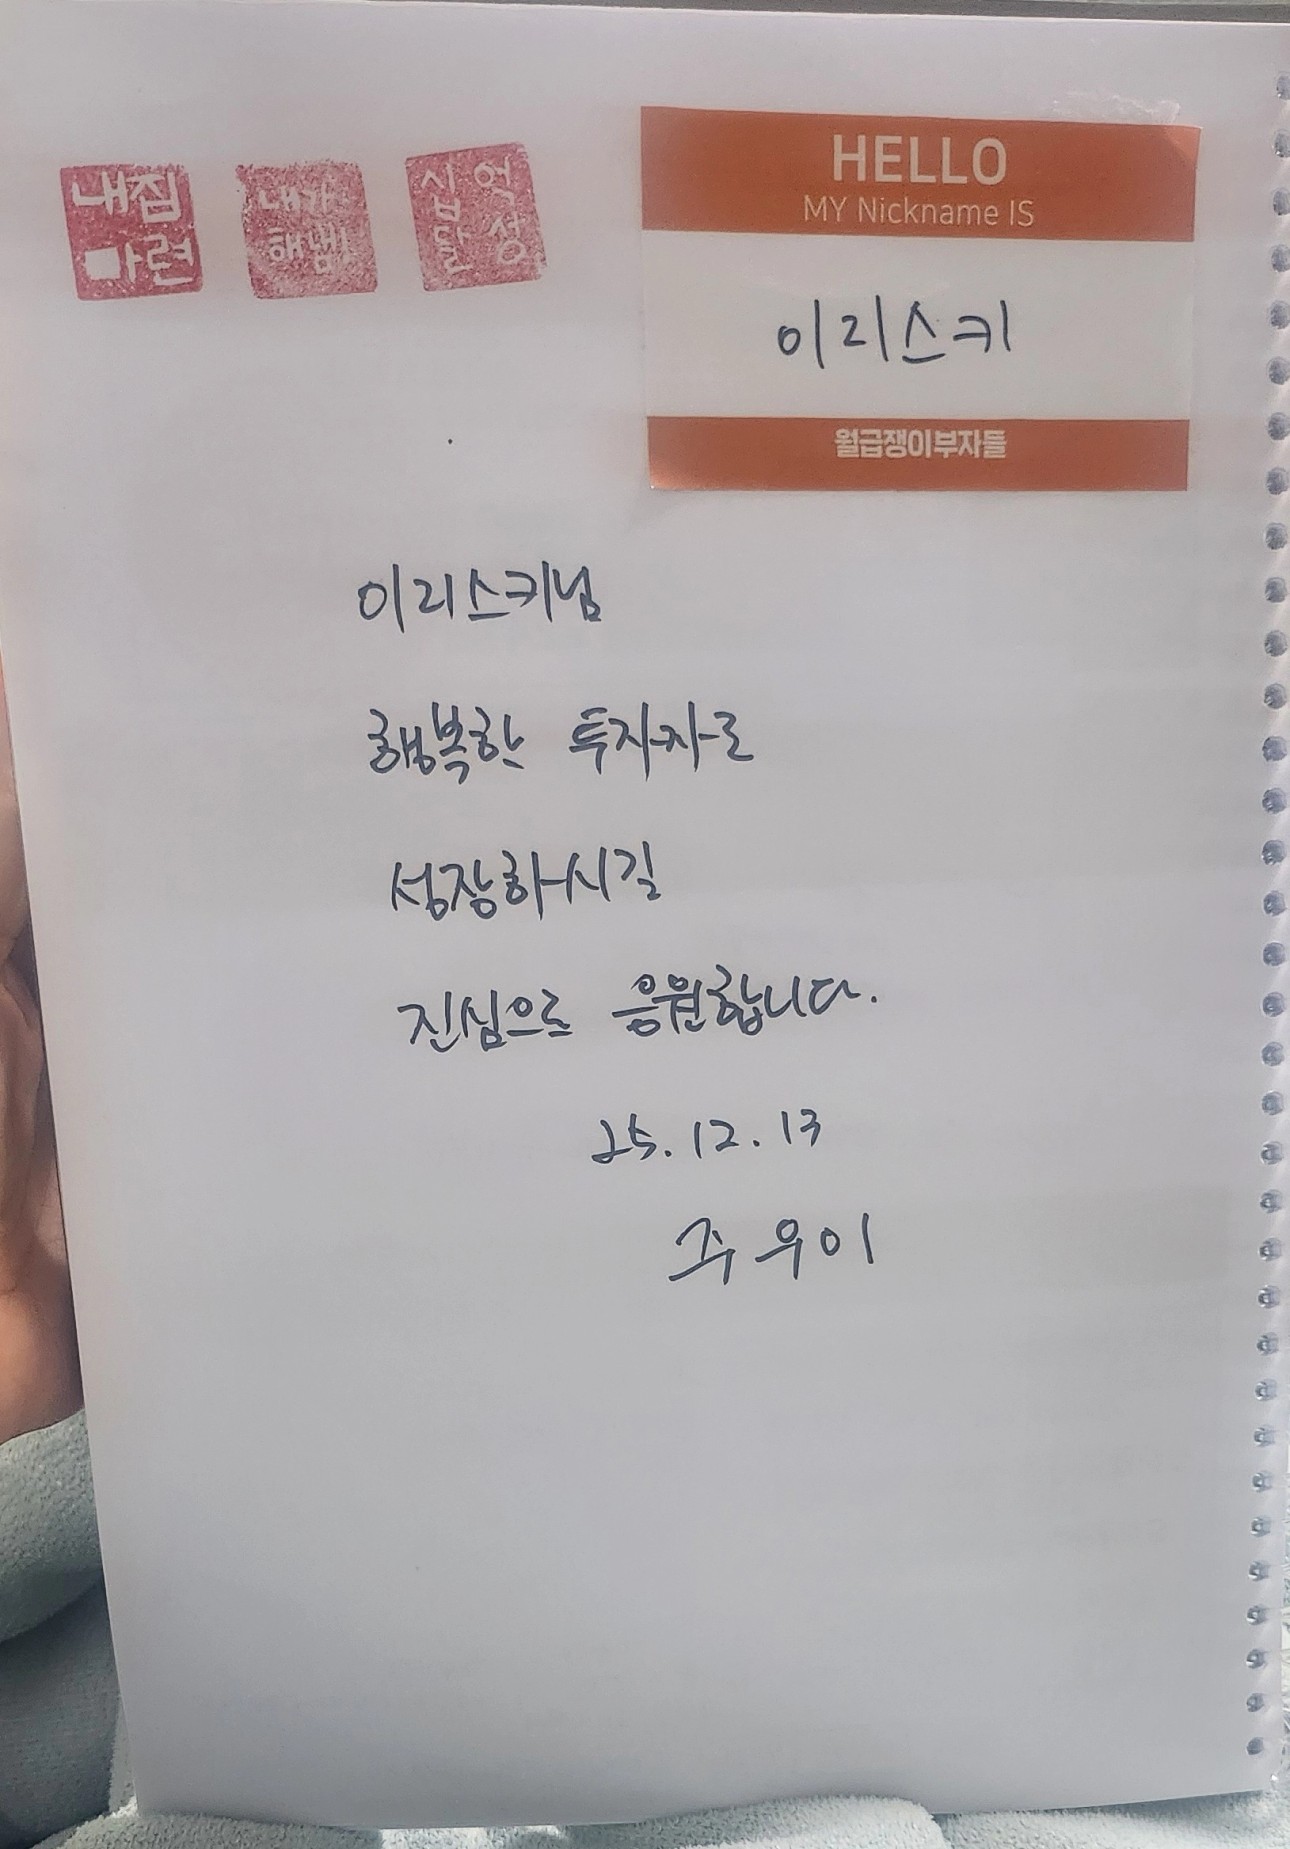 내집
마련
내가
해냄!
십억
달성
HELLO
MY Nickname IS
이리스키
월급쟁이부자들
이리스키님
행복한 투자자로
성장하시길
진심으로 응원합니다.
25.12.13
주우이